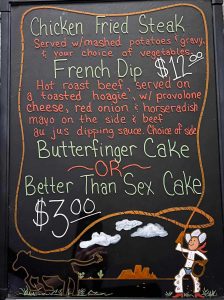 Chicken Fried Steak
Served w/mashed potatoes & gravy,
& your choice of vegetables.
French Dip $12.00
Hot roast beef, served on
a toasted hoagie, w/ provolone
cheese, red onion & horseradish
mayo on the side & beef
au jus dipping sauce. Choice of side
Butterfinger Cake
~OR~
Better Than Sex Cake
$3.00